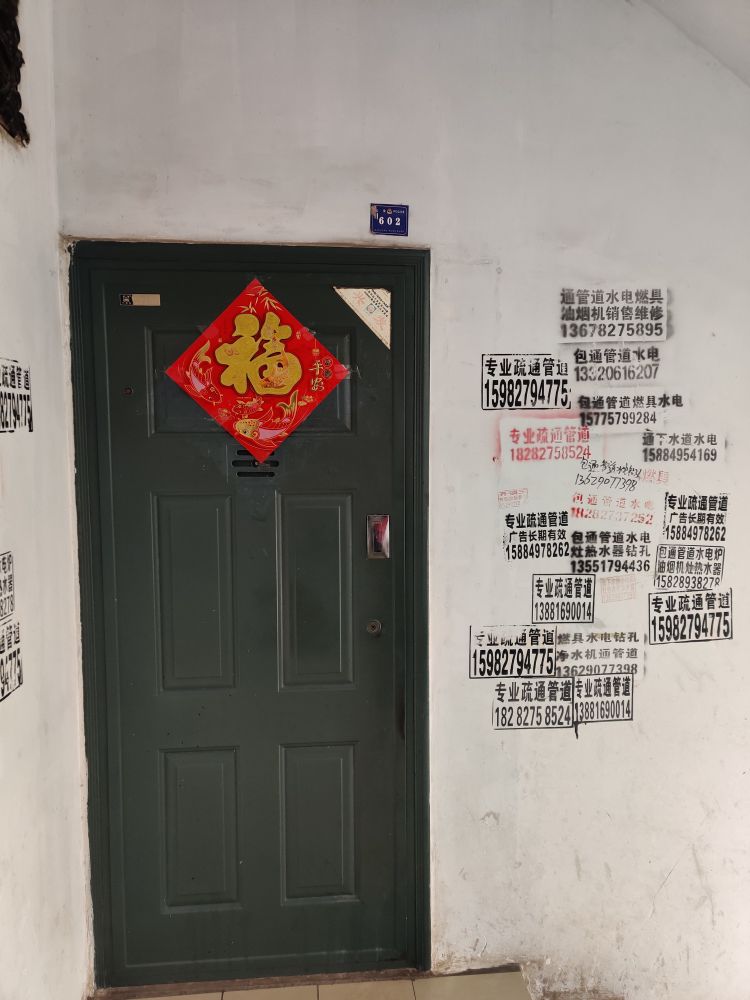 602
福
平安
通管道水电燃具
油烟机销售维修
13678275895
包通管道水电
13320616207
专业疏通管道
15982794775
包通管道燃具水电
15775799284
专业疏通管道
18282758524
通下水道水电
15884954169
包通管道
13629077398
燃具
包通管道水电
18282737252
专业疏通管道
广告长期有效
15884978262
专业疏通管道
广告长期有效
15884978262
包通管道水电
灶热水器钻孔
13551794436
包通管道水电炉
油烟机灶热水器
15828938278
专业疏通管道
13881690014
专业疏通管道
15982794775
专业疏通管道
15982794775
燃具水电钻孔
净水机通管道
13629077398
专业疏通管道
18282758524
专业疏通管道
13881690014
业疏通管道
82794775
水电炉
热水器
38278
管道
4775